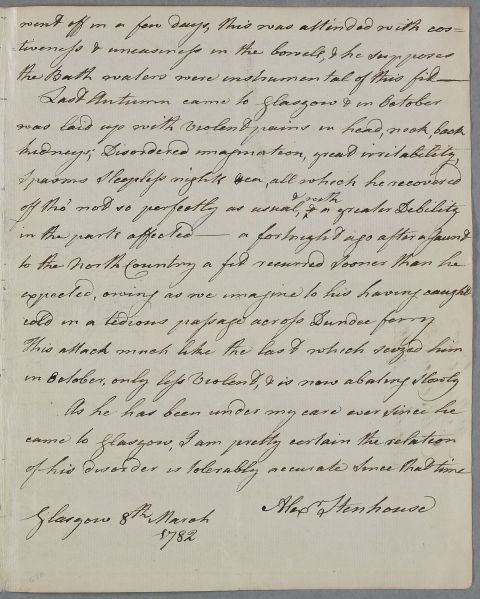 went off in a few days, this was attended with cos=
tiveness & uneasiness in the bowels, & he supposes
the Bath waters were instrumental of this fit —
Last Autumn came to Glasgow & in October
was laid up with Violent pains in head, neck, back
kidneys; Disordered imagination, great irritability,
Spasms Sleepless nights &ca, all which he recovered
off tho' not so perfectly as usual, & with a greater Debility
in the parts affected — a fortnight ago after a Jaunt
to the North Country a fit recurred Sooner than he
expected, owing as we imagine to his having caught
cold in a tedious passage across Dundee ferry
This attack much like the last which seized him
in October, only less Violent, & is now abating slowly
As he has been under my care ever since he
came to Glasgow, I am pretty certain the relation
of his disorder is tolerably accurate Since that time
Alexr Stenhouse
Glasgow 8th March
1782